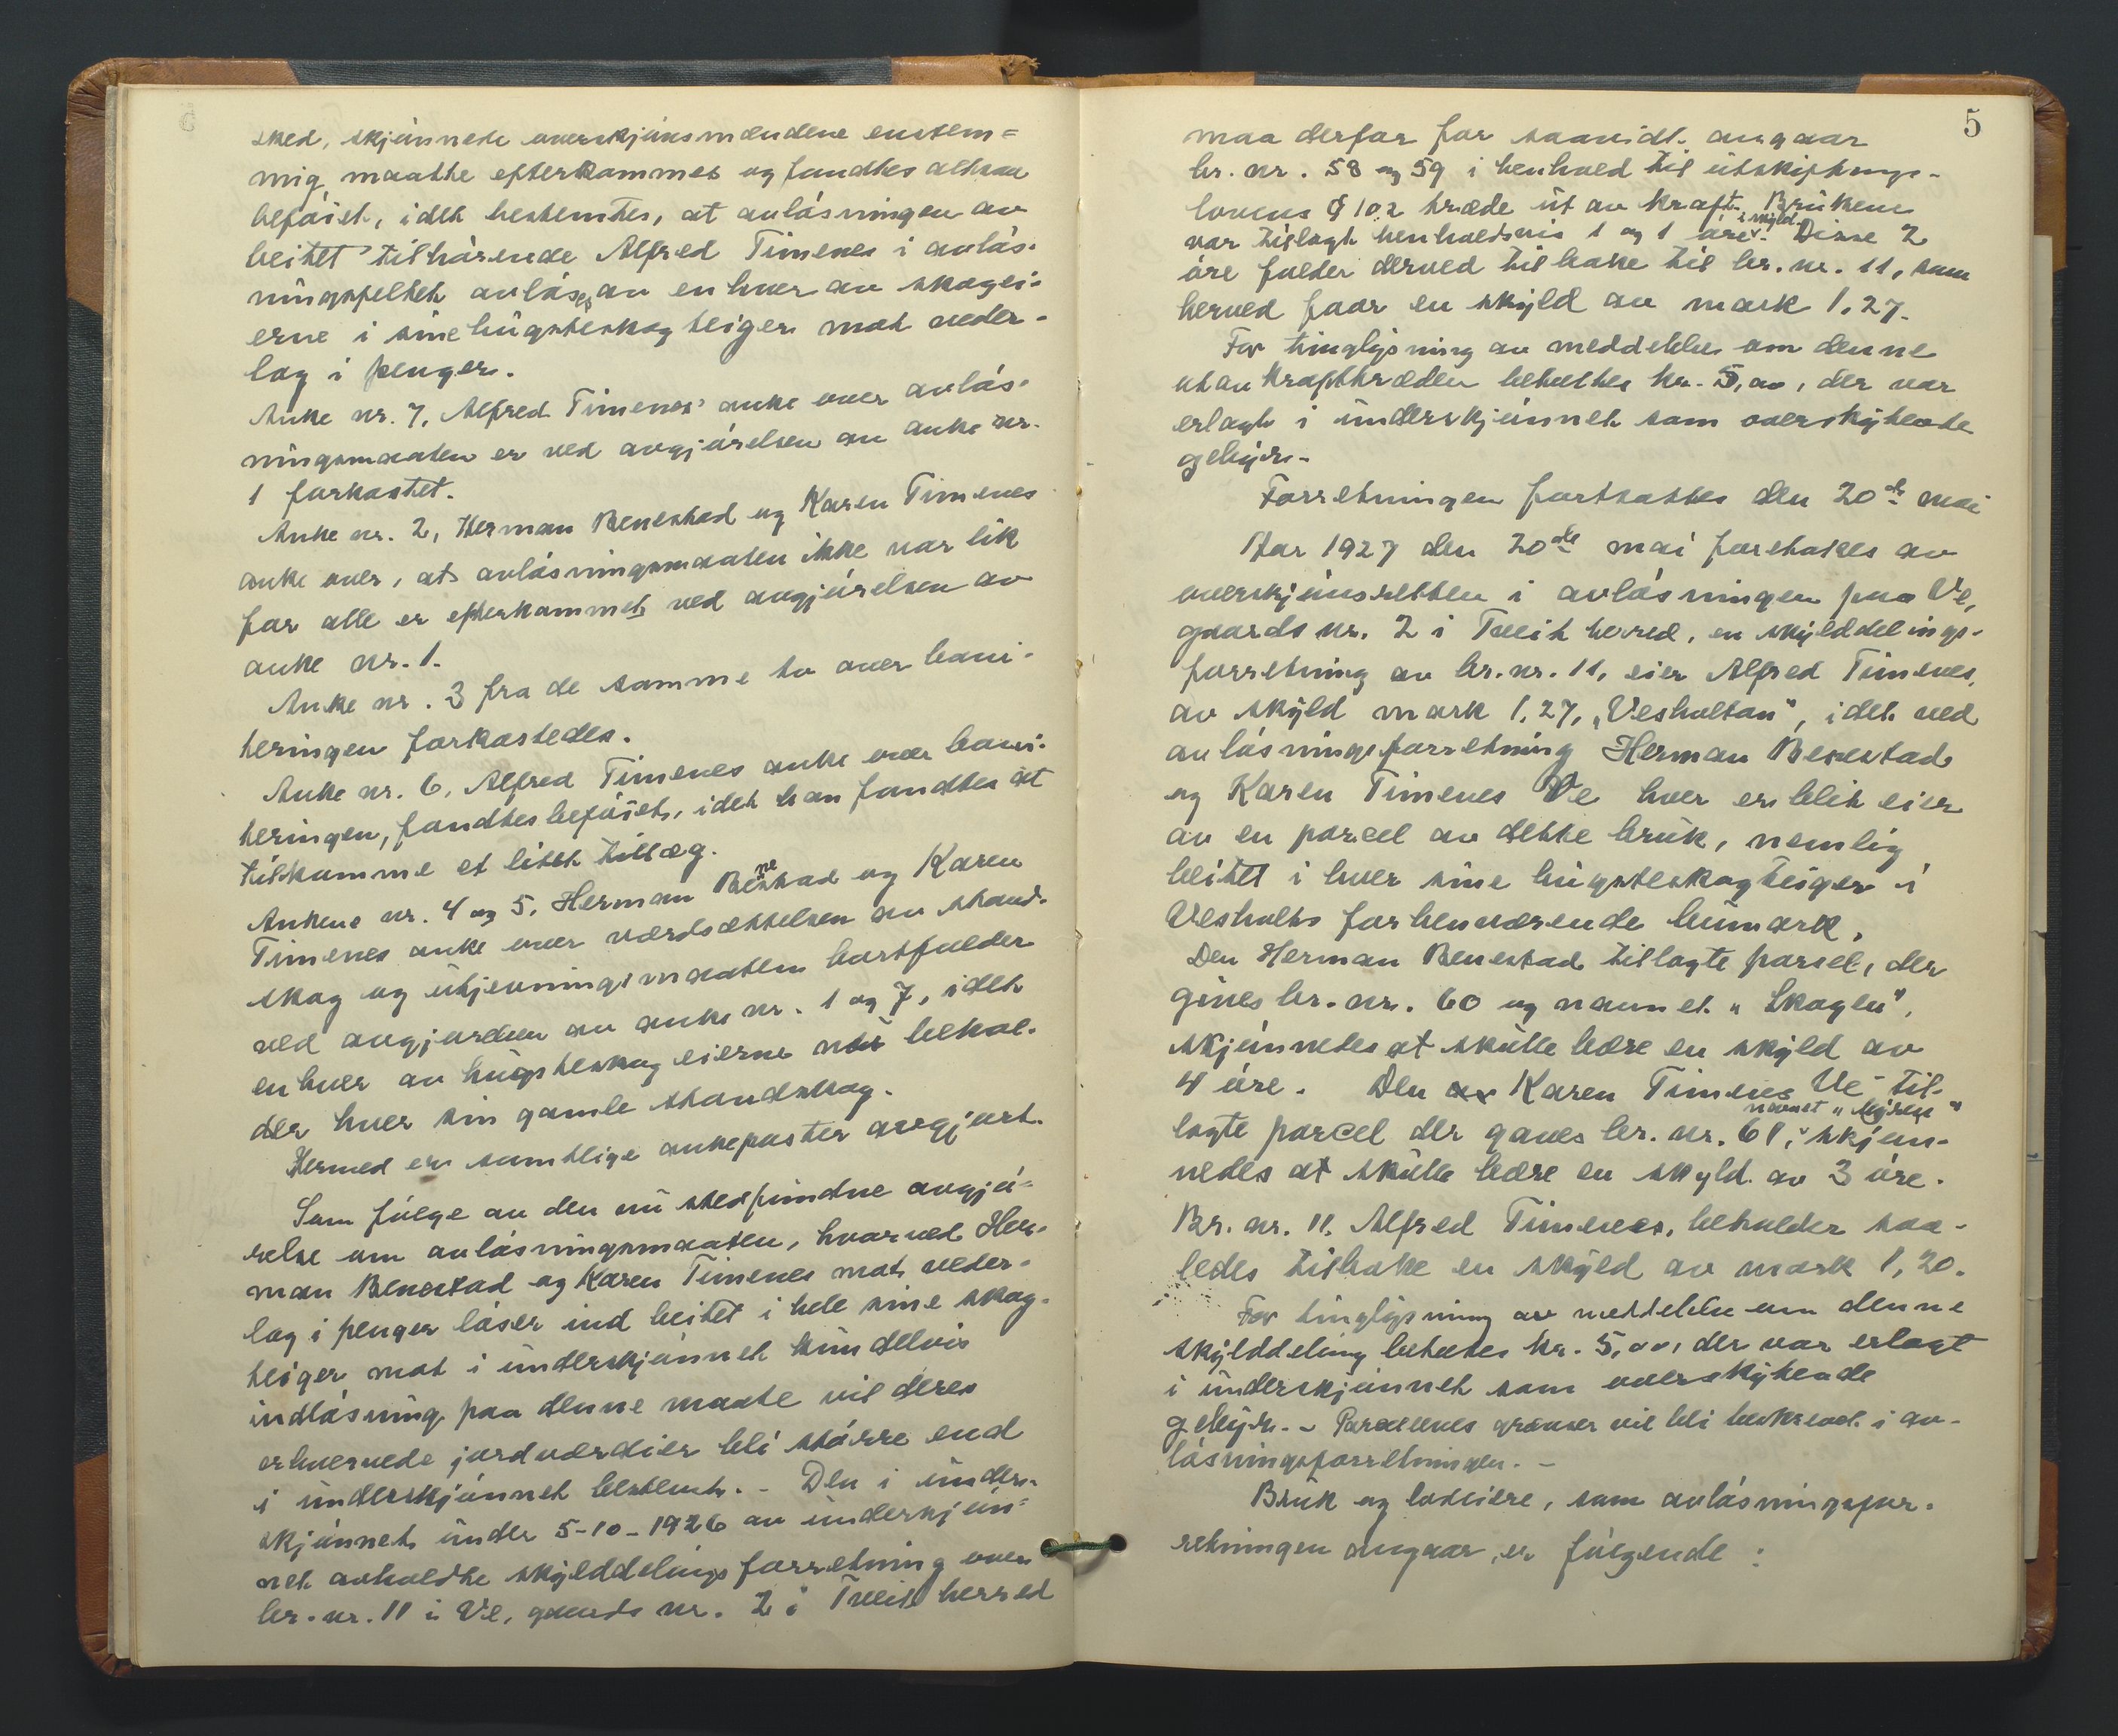 sked, skjönnede overskjönsmændene enstem=
mig maatte efterkommes og fandtes altsaa
beföiet, idet bestemtes, at avlösningen av
beitet tilhörende Alfred Timenes i avlös-
ningsfeltet avlöses av enhver av skogei-
erne i sine hugsteskogteiger mot veder-
lag i penger.
Anke nr. 7, Alfred Timenes' anke over avlös-
ningsmaaten er ved avgjörelsen av anke nr.
1 forkastet.
Anke nr. 2, Herman Benestad og Karen Timenes
anke over, at avlösningsmaaten ikke var lik
for alle er efterkommet ved avgjörelsen av
anke nr. 1.
Anke nr. 3 fra de samme to over boni-
teringen forkastedes.
Anke nr. 6, Alfred Timenes anke over boni-
teringen, fandtes beföiet, idet han fandtes at
tilkomme et litet tillæg.
Ankene nr. 4 og 5, Herman Benestad og Karen
Timenes anke over værdsættelsen av stand-
skog og utjevningsmaaten bortfalder
ved avgjörelsen av anke nr. 1 og 7, idet
enhver av hugsteskogeierne nu behol-
der hver sin gamle standskog.
Hermed er samtlige ankeposter avgjort.
Som fölge av den nu stedfundne avgjö-
relse om avlösningsmaaten, hvorved Her-
man Benestad og Karen Timenes mot veder-
lag i penger löser ind beitet i hele sine skog-
teiger mot i underskjönnet kun delvis
indlösning paa denne maate vil deres
erhvervede jordværdier bli större end
i underskjönnet bestemt. - Den i under-
skjönnet under 5-10-1926 av underskjön-
net avholdte skylddelingsforretning over
br. nr. 11 i Ve, gaards nr. 2 i Tveit herred
5
maa derfor for saavidt angaar
br. nr. 58 og 59 i henhold til utskiftnings-
lovens § 102 træde ut av kraft. Brukene
var tillagt henholdsvis 1 og 1 öre i skyld. Disse 2
öre falder derved tilbake til br. nr. 11, som
herved faar en skyld av mark 1,27.
For tinglysning av meddelelse om denne
utavkrafttræden betaltes kr. 5,00, der var
erlagt i underskjönnet som overskytende
gebyr.-
Forretningen fortsattes den 20de mai
Aar 1927 den 20de mai foretokes av
overskjönsretten i avlösningen paa Ve,
gaards nr. 2 i Tveit herred, en skylddelings-
forretning av br. nr. 11, eier Alfred Timenes,
av skyld mark 1,27, "Vesholtan", idet ved
avlösningsforretning Herman Benestad
og Karen Timenes Ve hver er blit eier
av en parcel av dette bruk, nemlig
beitet i hver sine hugsteskogteiger i
Vesholts forhenværende bumark.
Den Herman Benestad tillagte parsel, der
gives br. nr. 60 og navnet "Skogen",
skjönnedes at skulle bære en skyld av
4 öre. Den Karen Timenes Ve til-
lagte parcel der gaves br. nr. 61, navnet "Myrene" skjön-
nedes at skulle bære en skyld av 3 öre.
Br. nr. 11, Alfred Timenes, beholder saa-
ledes tilbake en skyld av mark 1,20.
For tinglysning av meddelelse om denne
skylddeling betaltes kr. 5,00, der var erlagt
i underskjönnet som overskytende
gebyr. - Parcellenes grænser vil bli beskrevet i av-
lösningsforretningen. -
Bruk og lodeiere, som avlösningsfor-
retningen angaar, er fölgende: